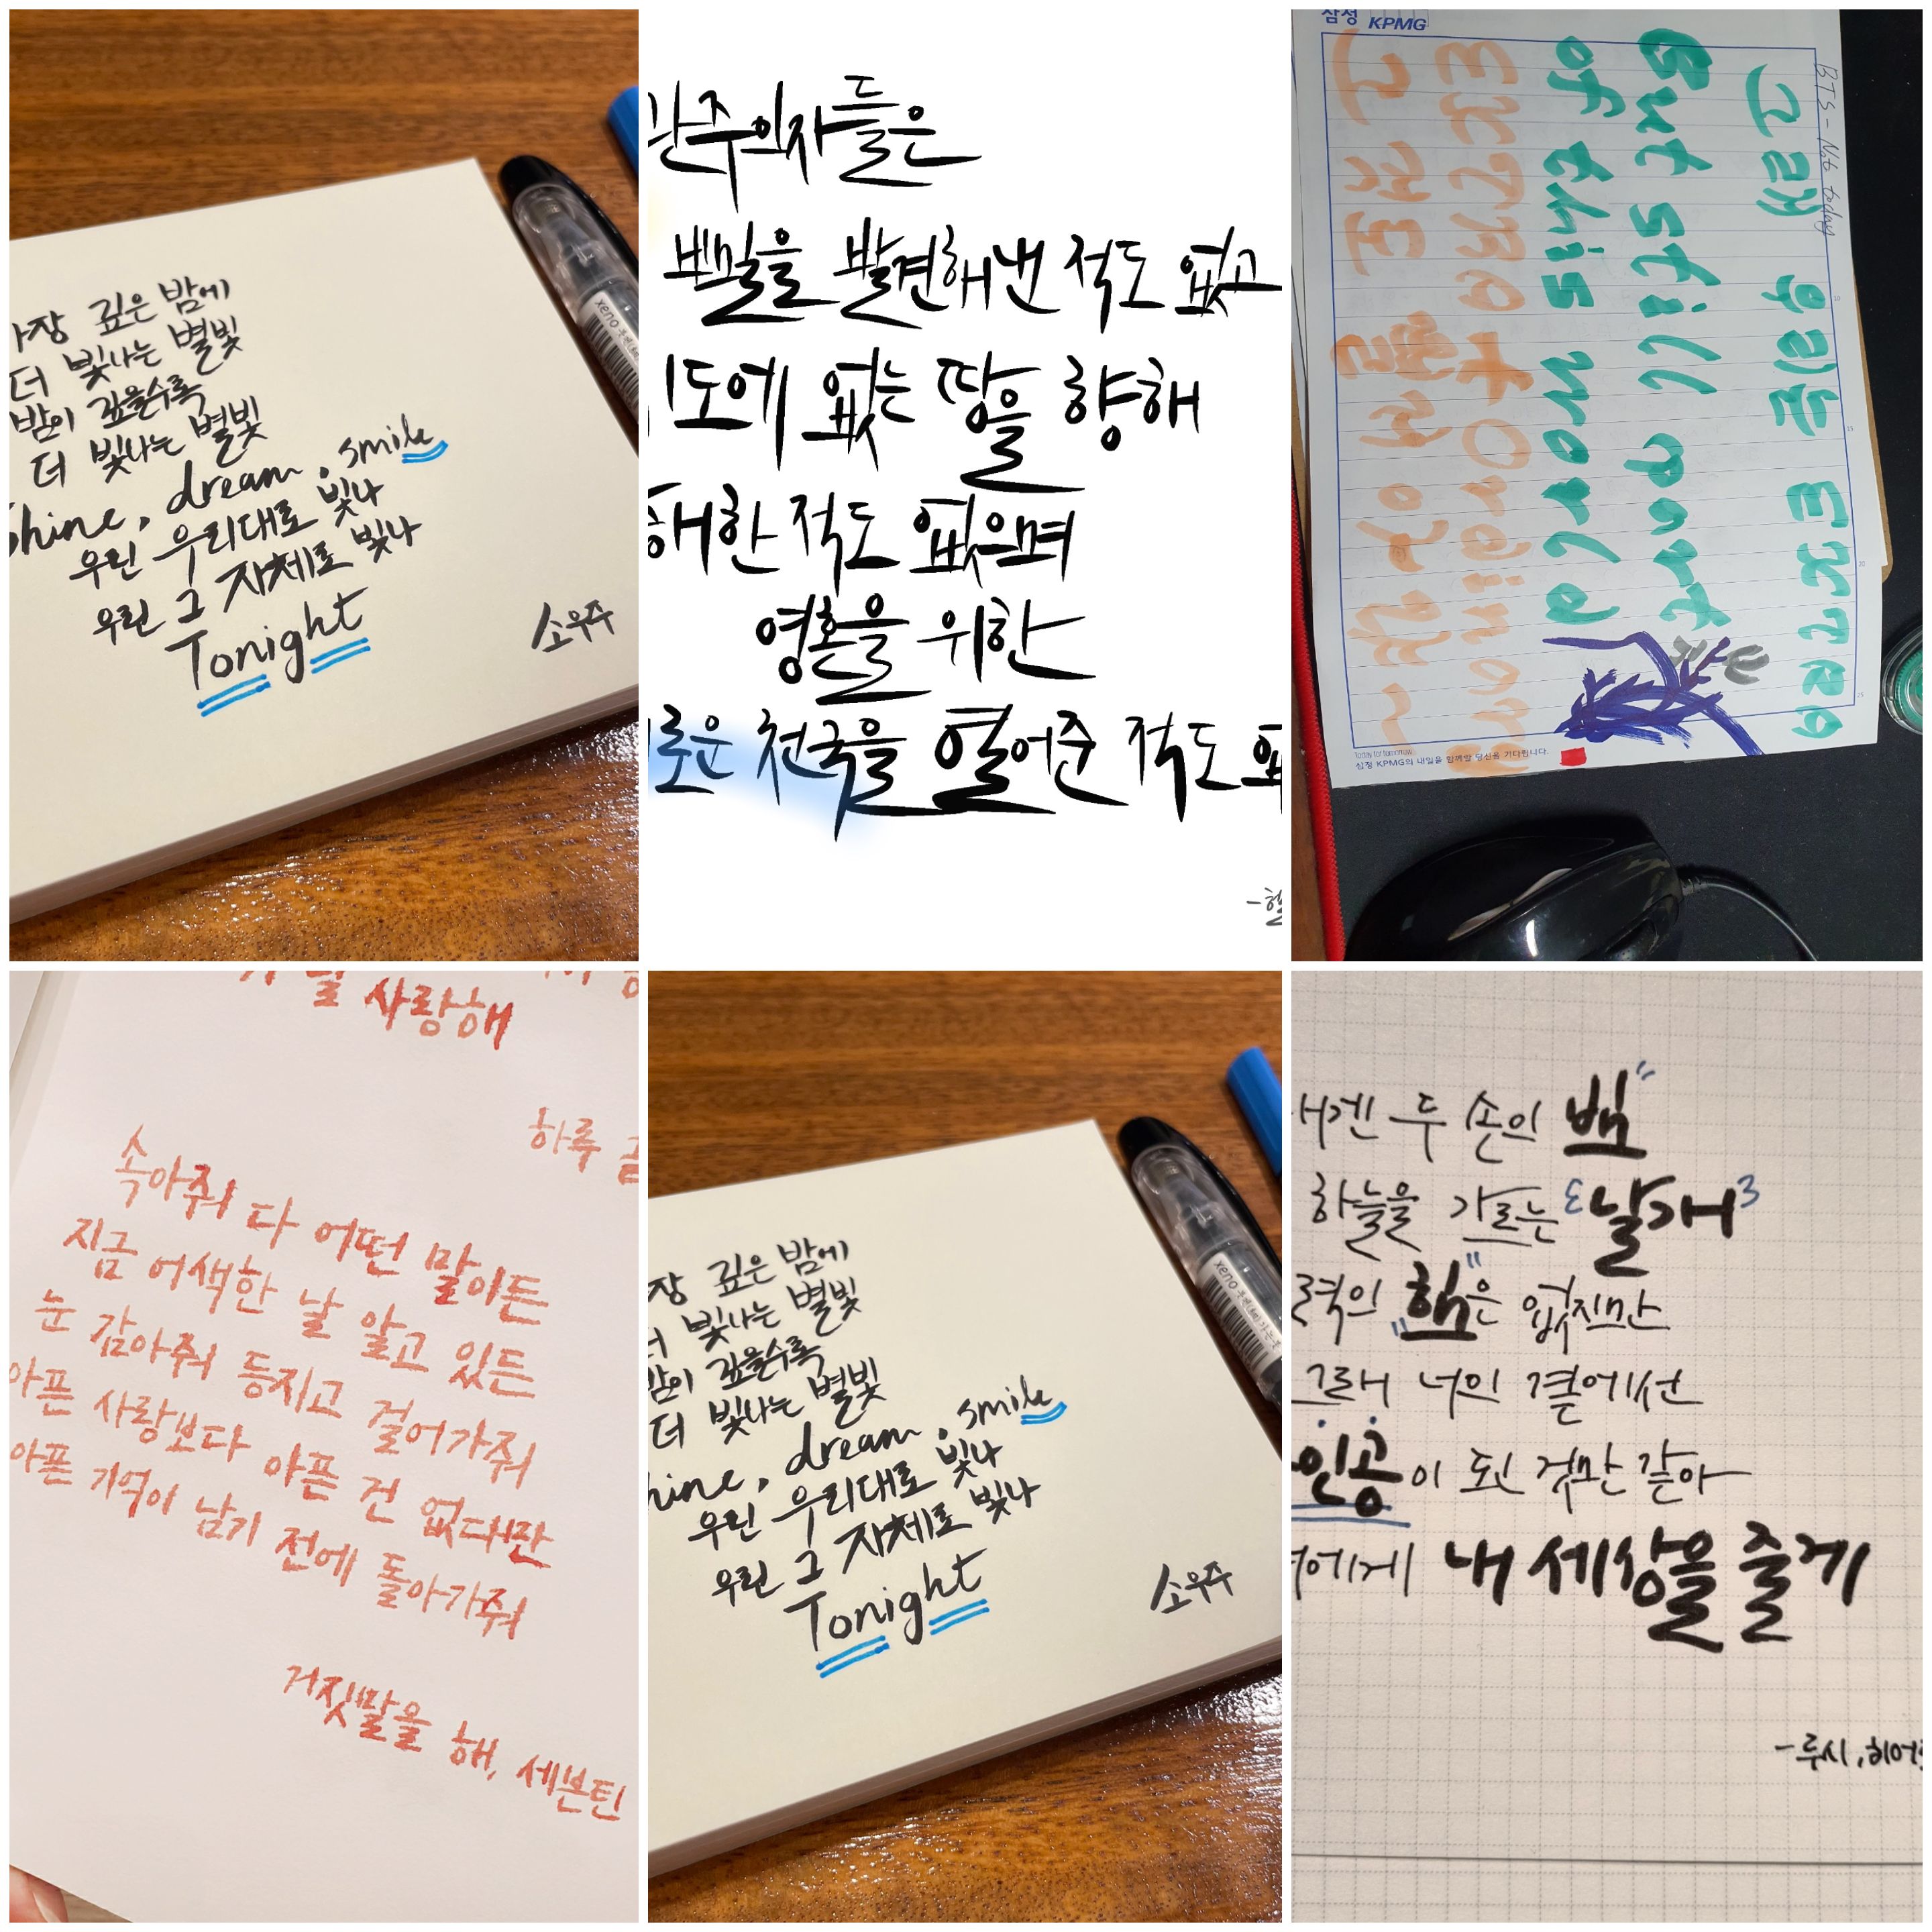 장 깊은 밤에
더 빛나는 별빛
밤이 깊을수록
더 빛나는 별빛
Shine, dream, smile
우린 우리대로 빛나
우린 그 자체로 빛나
Tonight
소우주
xeno
관주의자들은
비밀을 발견해낸 적도 없고
지도에 없는 땅을 향해
해한 적도 없으며
영혼을 위한
로운 천국을 열어준 적도 없
삼정 KPMG
BTS - Not today
그래 우리는 EXTRA
But still part
of this world
EXTRA + Ordinary
그것도 별 거 아냐~
Today for tomorrow
삼정 KPMG의 내일을 함께할 당신을 기다립니다.
널 사랑해
하루
속아줘 다 어떤 말이든
지금 어색한 날 알고 있든
눈 감아줘 등지고 걸어가줘
아픈 사랑보다 아픈 건 없대만
아픈 기억이 남기 전에 돌아가줘
거짓말을 해, 세븐틴
장 깊은 밤에
빛나는 별빛
밤이 깊을수록
더 빛나는 별빛
hine, dream, smile
우린 우리대로 빛나
우린 그 자체로 빛나
Tonight
소우주
xeno
내겐 두 손의 뱀
하늘을 가르는 날개
력의 힘은 없지만
그래 너의 곁에선
인공이 된 것만 같아
에게 내 세상을 줄게
-루시, 히어